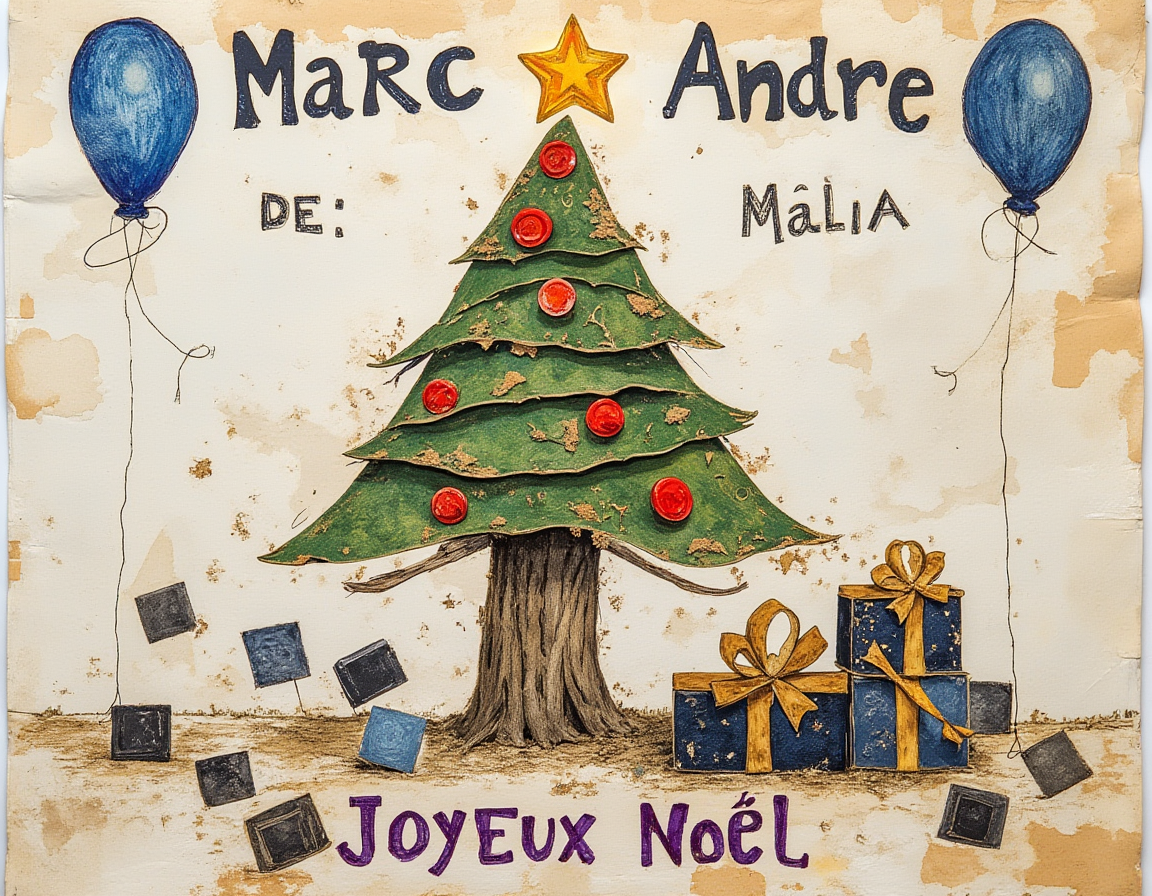 MaRC Andre
DE: MâLiA
JOYEUX NOËL